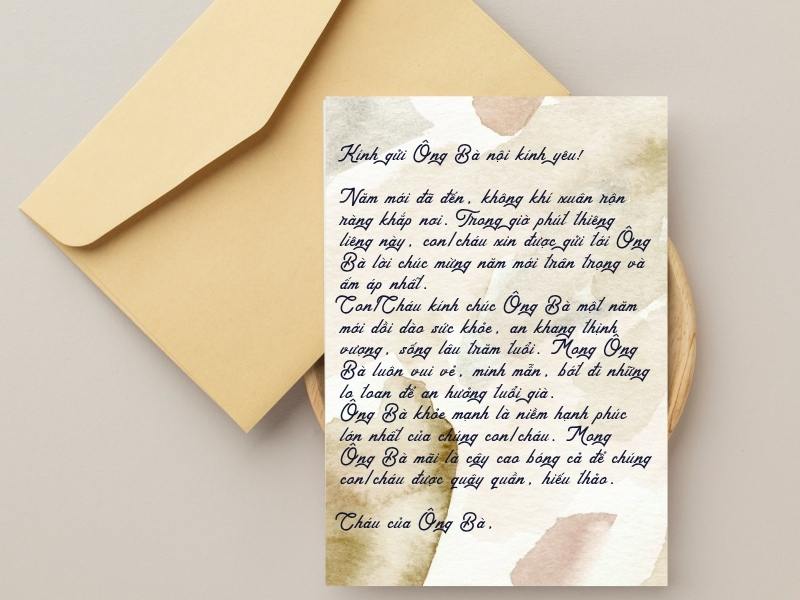 Kính gửi Ông Bà nội kính yêu!
Năm mới đã đến, không khí xuân rộn
ràng khắp nơi. Trong giờ phút thiêng
liêng này, con/cháu xin được gửi tới Ông
Bà lời chúc mừng năm mới trân trọng và
ấm áp nhất.
Con/Cháu kính chúc Ông Bà một năm
mới dồi dào sức khỏe, an khang thịnh
vượng, sống lâu trăm tuổi. Mong Ông
Bà luôn vui vẻ, minh mẫn, bớt đi những
lo toan để an hưởng tuổi già.
Ông Bà khỏe mạnh là niềm hạnh phúc
lớn nhất của chúng con/cháu. Mong
Ông Bà mãi là cây cao bóng cả để chúng
con/cháu được quây quần, hiếu thảo.
Cháu của Ông Bà,